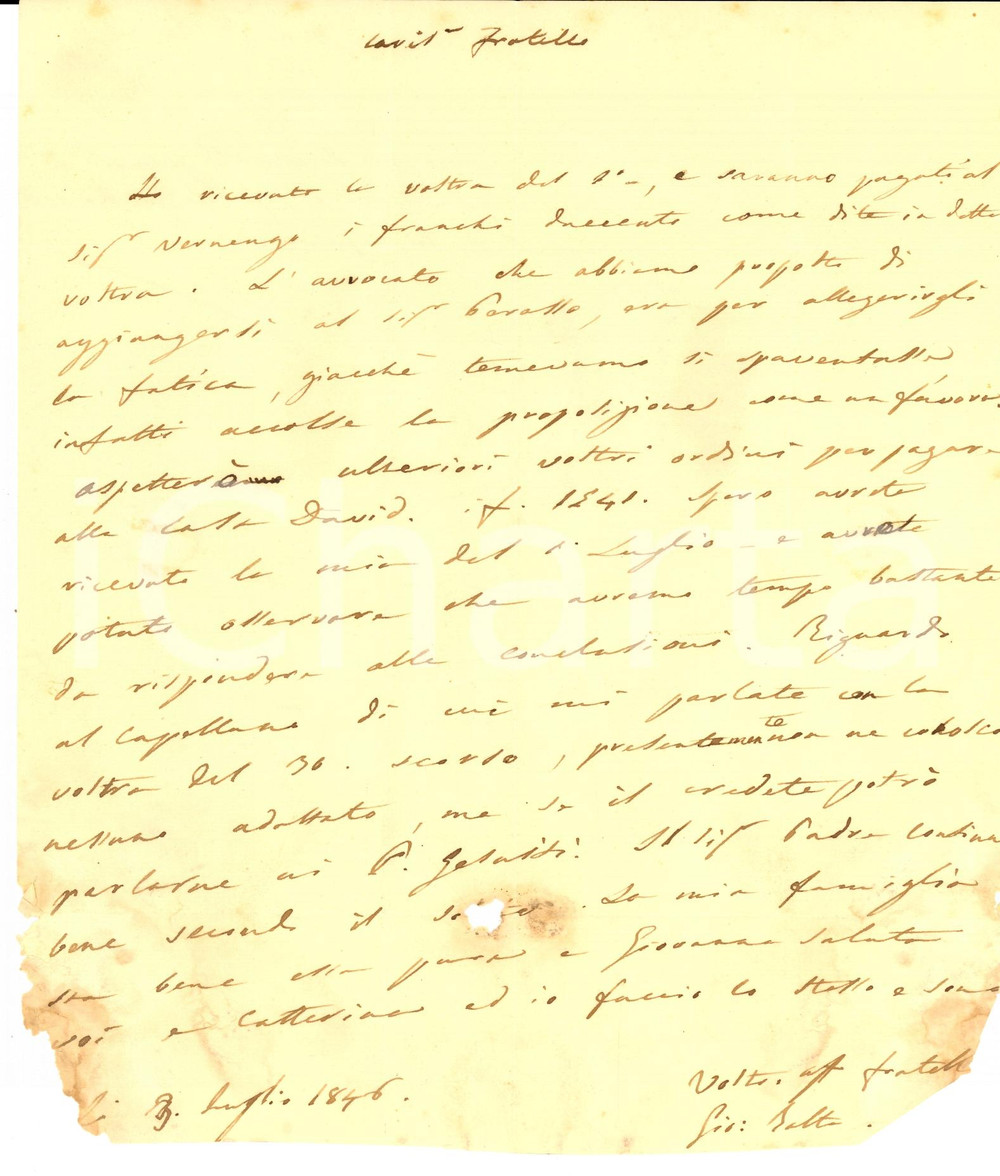 Caris.º Fratello
Ho ricevuto la vostra del 1º, e saranno pagati al
Sigʳ Vernengo i franchi duecento come dite in detta
vostra. L'avvocato che abbiamo proposto di
aggiungersi al Sigʳ Parasso, era per allegerirgli
la fatica, giacchè temevamo si spaventasse,
infatti accolse la proposizione come un favore.
aspetterò ulteriori vostri ordini per pagare
alla Casa David. i f. 1541. Spero avrete
ricevuto la mia del 1. Luglio e avrete
potuto osservare che avremo tempo bastante
da rispondere alle conclusioni. Riguardo
al Capellano di cui mi parlate con la
vostra del 30. scorso, presentemente non ne conosco
nessuno adattato, ma se il credete potrò
parlarne ai P. Gesuiti. Il Sigʳ Padre continua
bene secondo il so to. La mia famiglia
sta bene essa pure e Giovanna saluta
voi e Catterina ed io faccio lo stesso e sono
Vostr. aff fratell
Li 3. Luglio 1846.
Gio: Batta.
iCharta